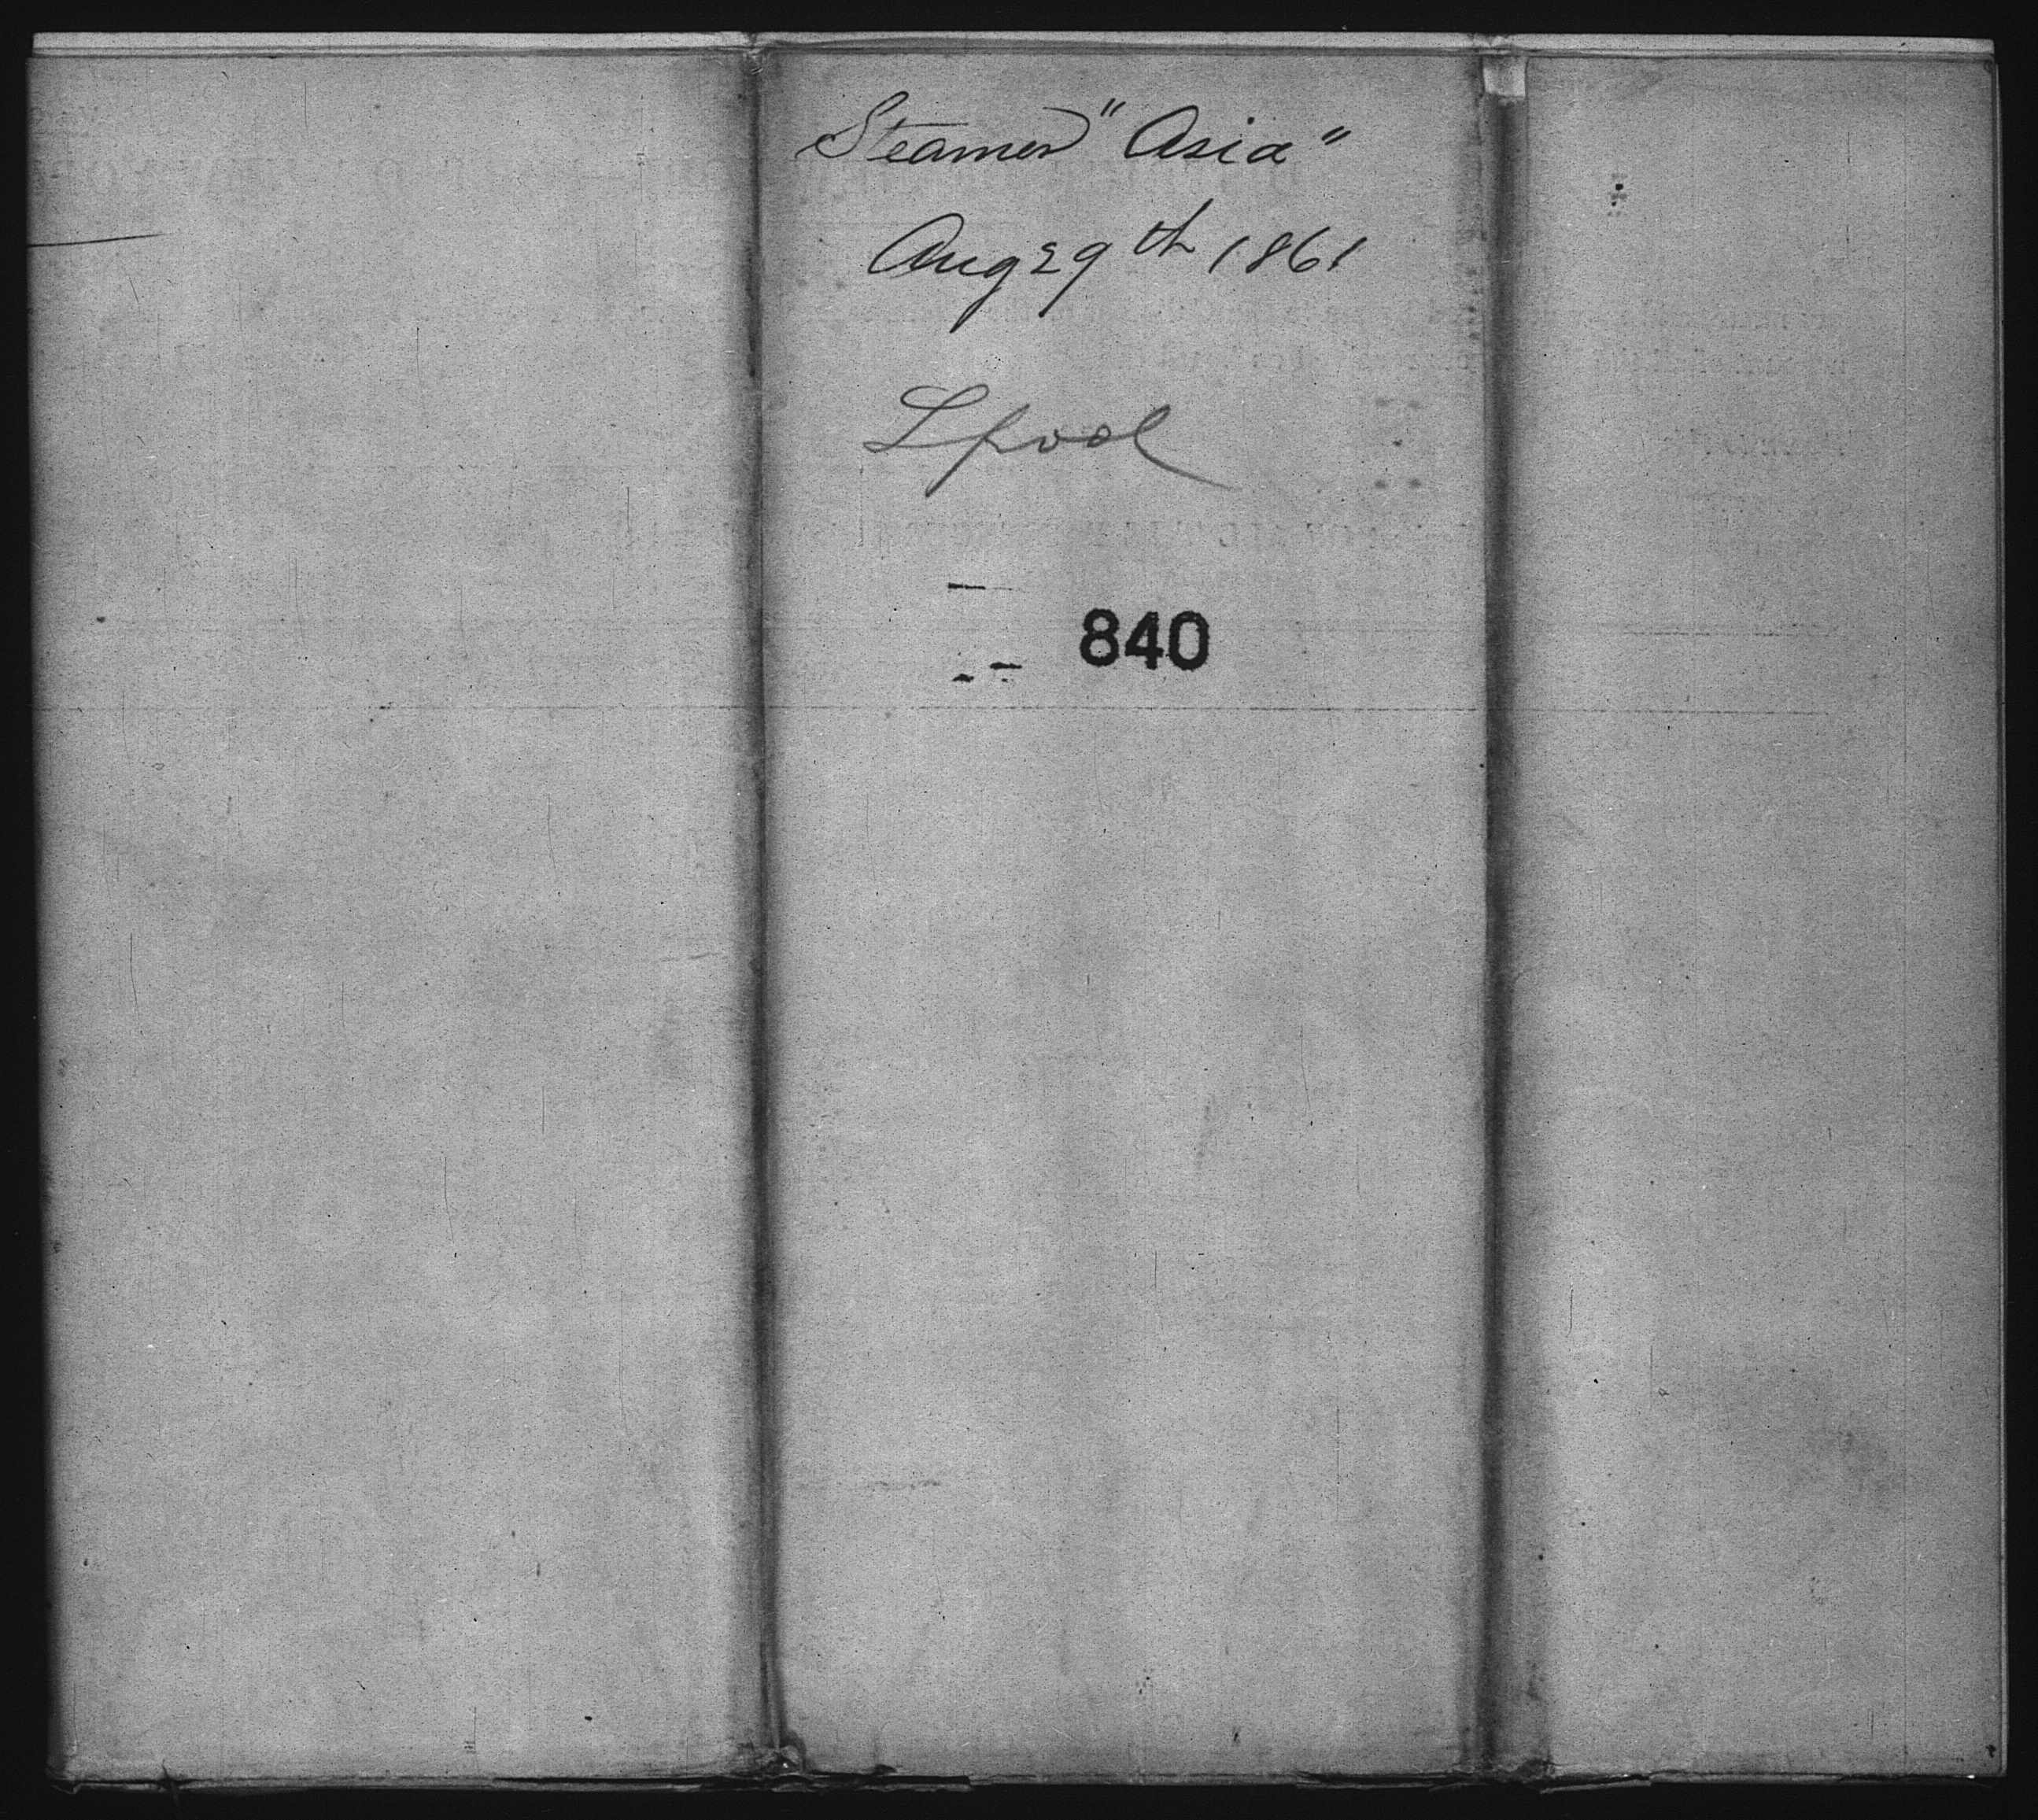 Steamer "Asia"
Aug 29th 1861
Lpool
840